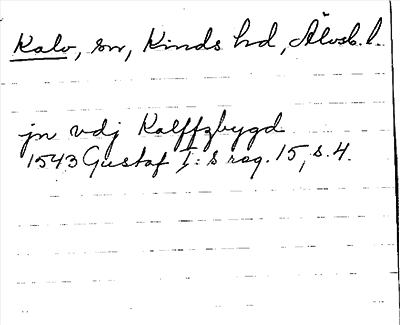 Kalv, sn, Kinds hd, Älvsb. l.
jn vdj Kalffzbygd
1543 Gustaf I:s reg. 15, s. 4.